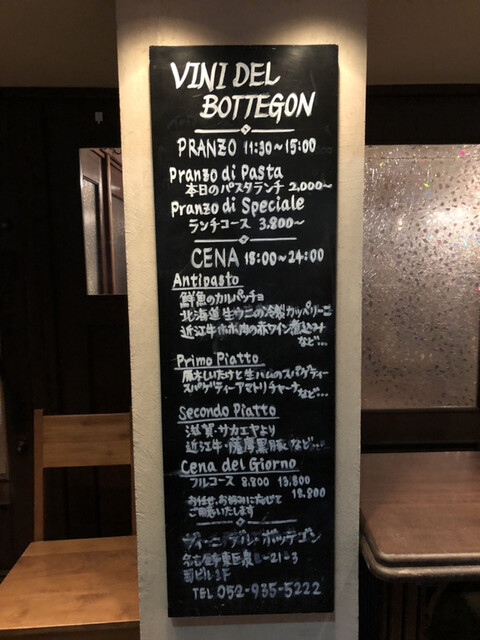 VINI DEL
BOTTEGON
PRANZO 11:30~15:00
Pranzo di Pasta
本日のパスタランチ 2,000~
Pranzo di Speciale
ランチコース 3,800~
CENA 18:00~24:00
Antipasto
鮮魚のカルパッチョ
北海道生ウニの冷製カッペリーニ
近江牛ホホ肉の赤ワイン煮込み
など…
Primo Piatto
原木しいたけと生ハムのスパゲティー
スパゲティーアマトリチャーナ など…
Secondo Piatto
滋賀・サカエヤより
近江牛・薩摩黒豚 など…
Cena del Giorno
フルコース 8.800 13.800
18.800
お任せ、お好みに合せて
ご用意いたします
ヴィーニ デル・ボッテゴン
名古屋市東区泉 -21-3
菊ビル1F
TEL 052-935-5222